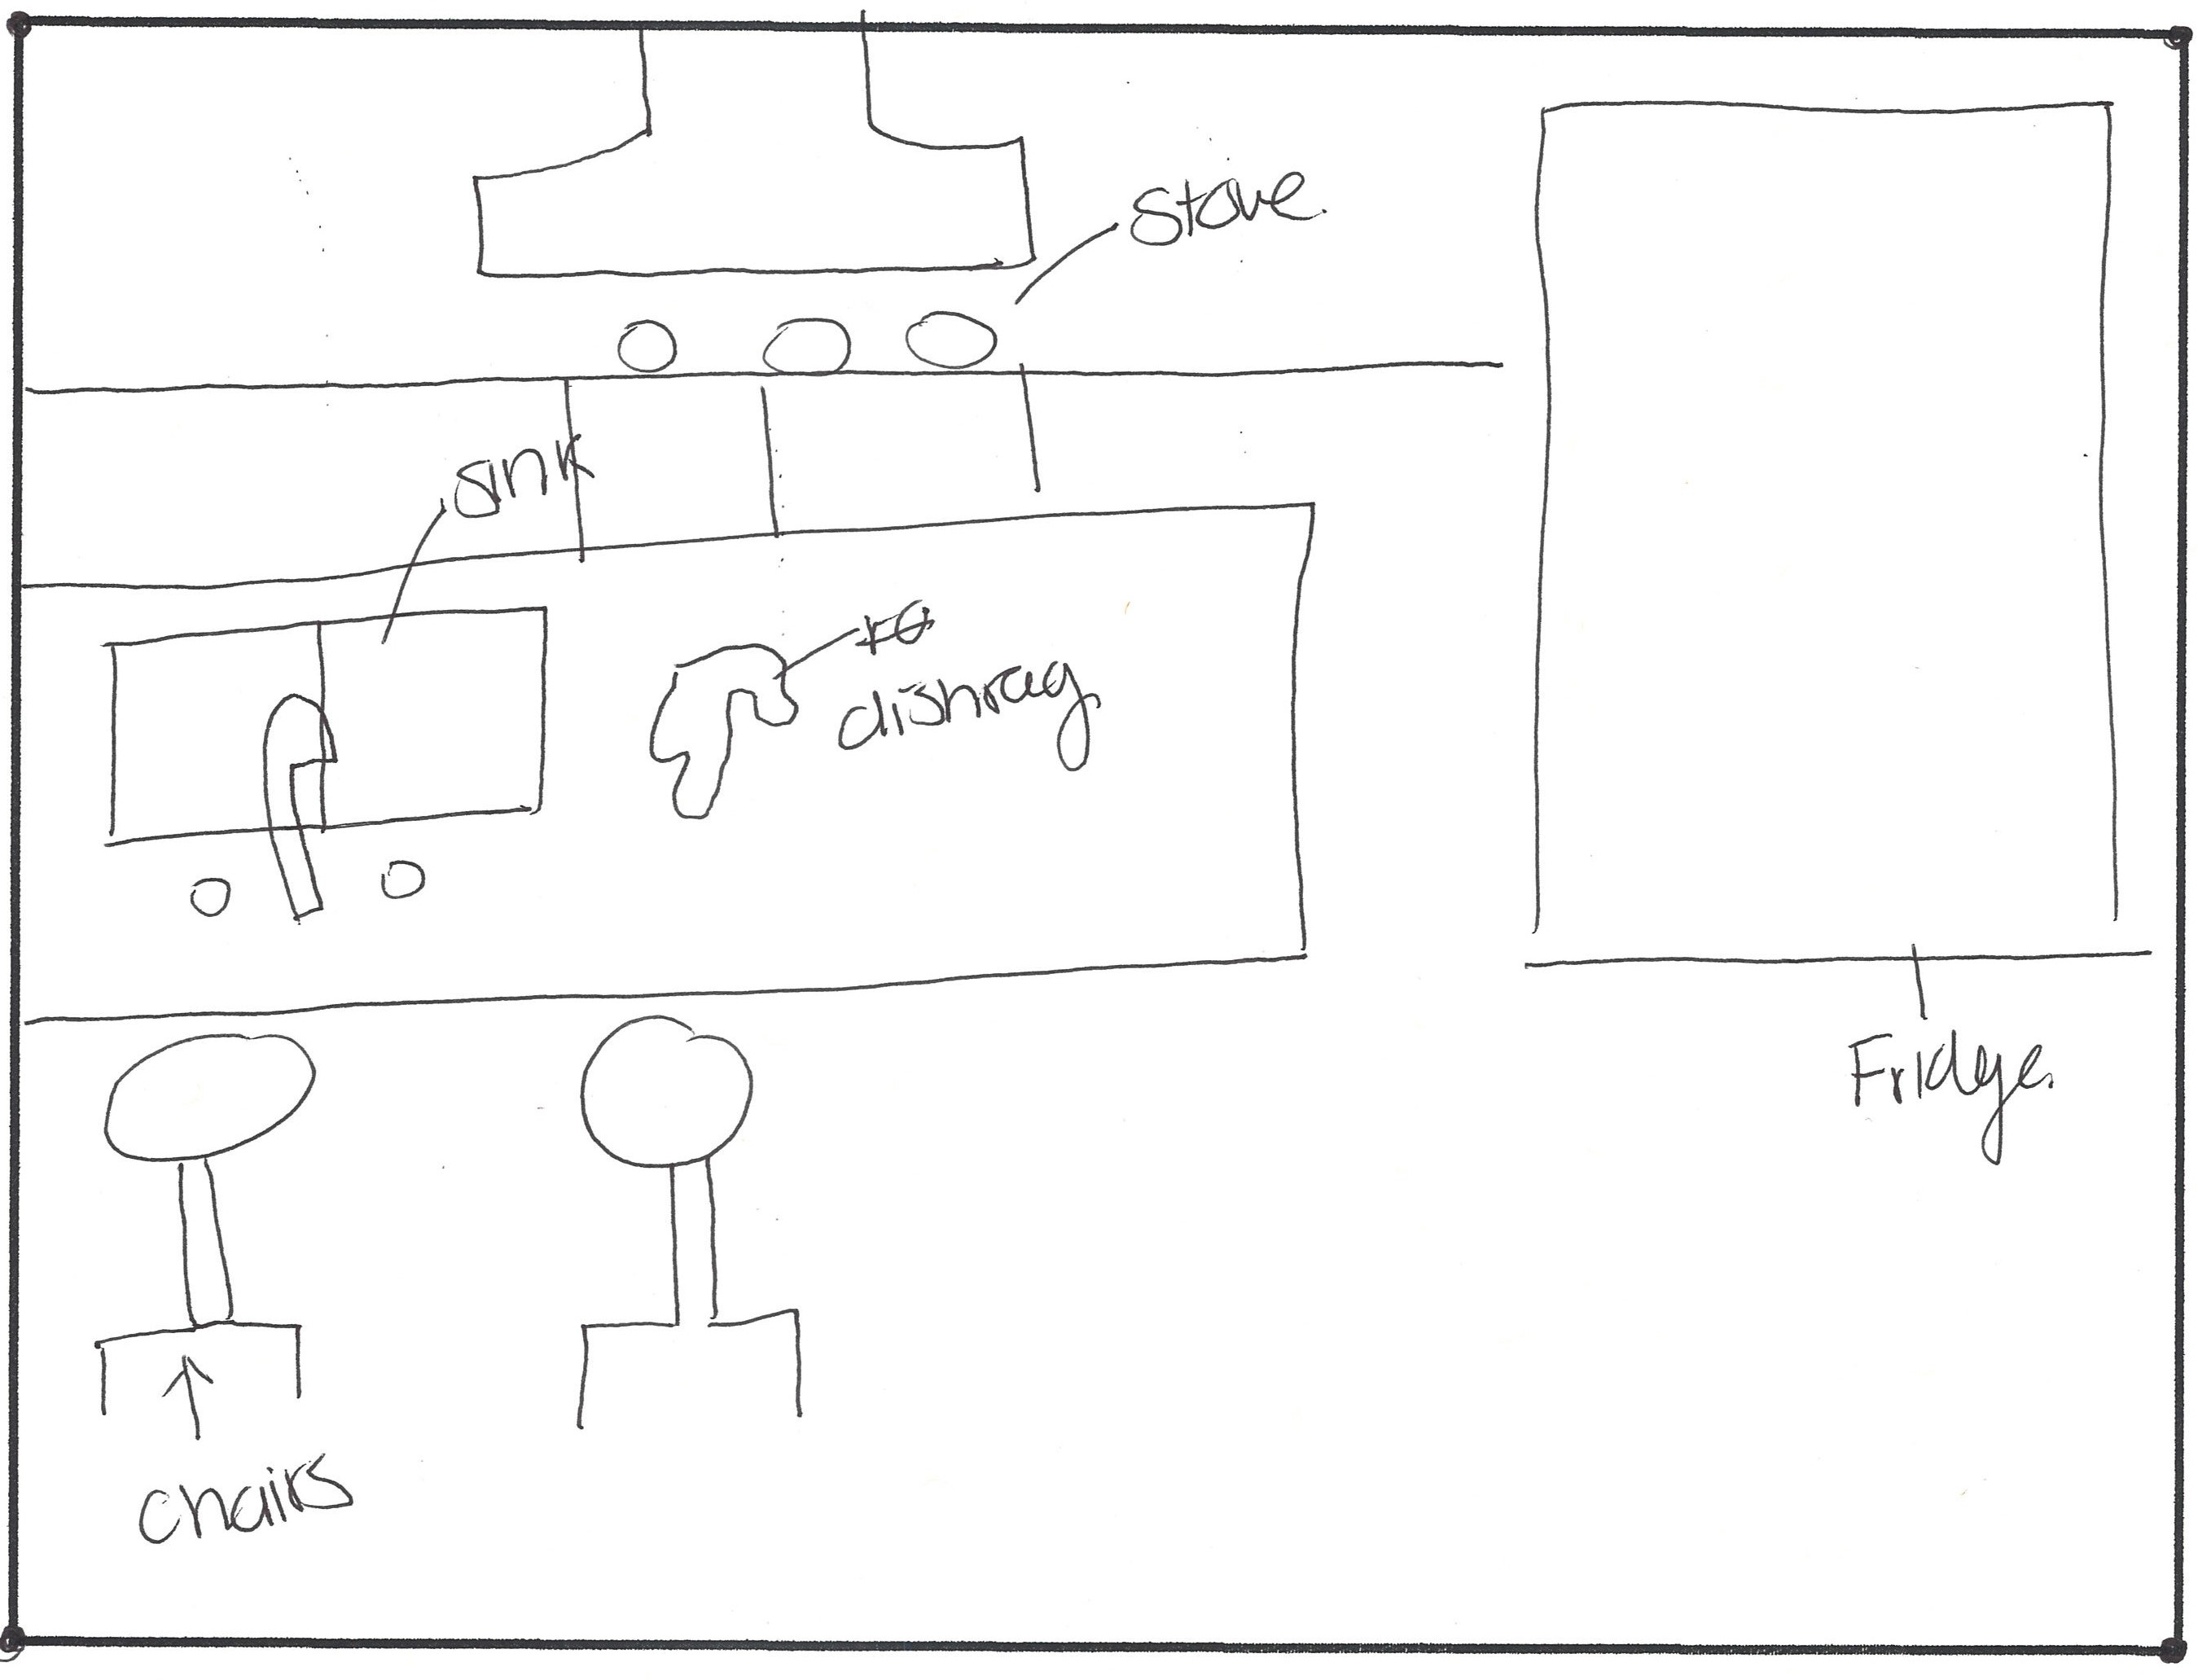 stove
sink
dishrag
Fridge
chairs